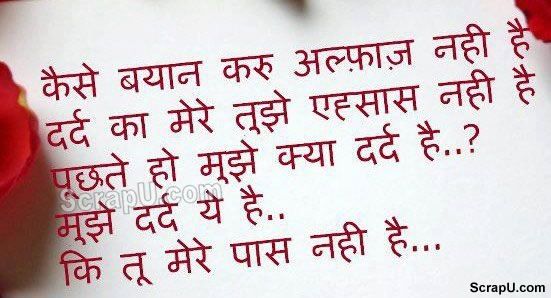 कैसे बयान करु अल्फ़ाज़ नही है
दर्द का मेरे तुझे एह्सास नही है
पूछते हो मूझे क्या दर्द है..?
ScrapU.com
मूझे दर्द ये है..
कि तू मेरे पास नही है...
ScrapU.com